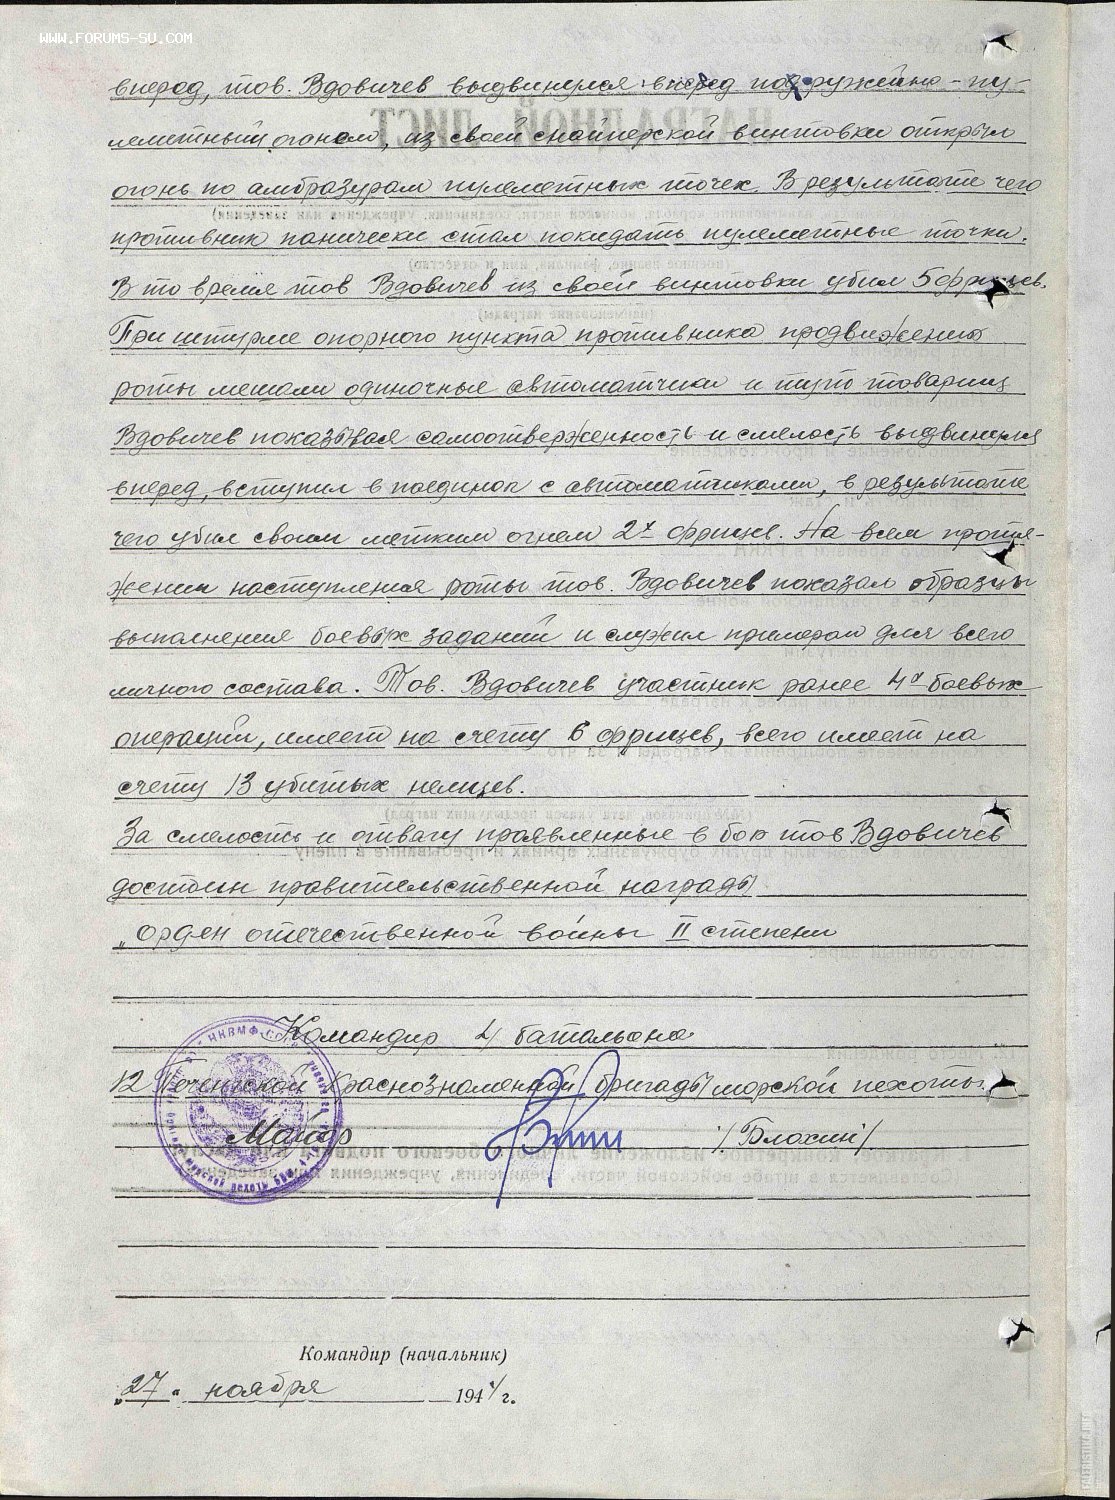 WWW.FORUMS-SU.COM
вперед, тов. Вдовичев выдвинулся вперед под ружейно-пу-
леметный огонем, из своей снайперской винтовки открыл
огонь по амбразурам пулеметных точек. В результате чего
противник панически стал покидать пулеметные точки.
В то время тов Вдовичев из своей винтовки убил 5 фрицев.
При штурме опорного пункта противника продвижению
роты мешали одиночные автоматчики и тут товарищ
Вдовичев показывая самоотверженность и смелость выдвинулся
вперед, вступил в поединок с автоматчиками, в результате
чего убил своим метким огнем 2х фрицев. На всем протя-
жении наступления роты тов. Вдовичев показал образцы
выполнения боевых заданий и служил примером для всего
личного состава. Тов. Вдовичев участник ранее 4х боевых
операций, имеет на счету 6 фрицев, всего имеет на
счету 13 убитых немцев.
За смелость и отвагу проявленные в бою тов Вдовичев
достоин правительственной награды
„орден отечественной войны II степени
Командир 4 батальона
12 Печенгской Краснознаменной бригады морской пехоты.
Майор /Блохин/
Командир (начальник)
„27" ноября 1944 г.